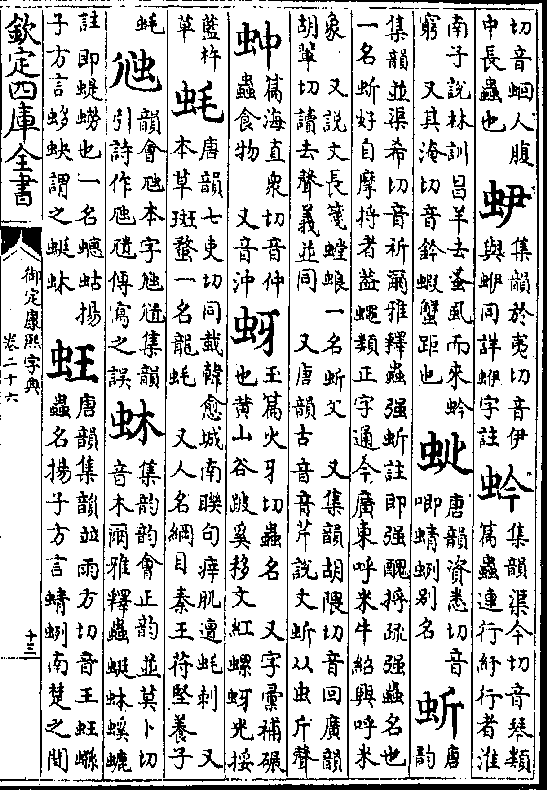 切音蛔人腹
中長蟲也
集韻於夷切音伊
與蛜同詳蛜字註
蚙
集韻渠今切音琴類
篇蟲連行紆行者淮
南子說林訓昌羊去蚤虱而來蚙
窮 又其淹切音鈐蝦蟹距也
唐韻資悉切音
唧蜻蛚别名
蚚
唐
韻
集韻並渠希切音祈爾雅釋蟲强蚚註即强醜捋疏强蟲名也
一名蚚好自摩捋者葢蠅類正字通今廣東呼米牛紹興呼米
象 又說文長箋螳蜋一名蚚父 又集韻胡隈切音回廣韻
胡輩切讀去聲義並同 又唐韻古音音芹說文蚚从虫斤聲
蚛
篇海直衆切音仲
蟲食物 又音沖
蚜
玉篇火牙切蟲名 又字彙補碾
也黄山谷跛奚移文紅螺蚜光挼
藍杵
草
蚝
唐韻七吏切同蛓韓愈城南聯句痒肌遭蚝刺 又
本草斑蝥一名龍蚝 又人名綱目秦王苻堅養子
蚝
韻會虺本字虺隤集韻
引詩作虺隤傳寫之誤
蚞
集韵韵會正韵並莫卜切
音木爾雅釋蟲蜓蚞螇螰
註即蝭蟧也一名蟪蛄揚
子方言蛥蚗謂之蜓蚞
蚟
唐韻集韻並雨方切音王蚟孫
蟲名揚子方言蜻蛚南楚之間
欽定四庫全書
御定康熙字典
卷二十六
十三